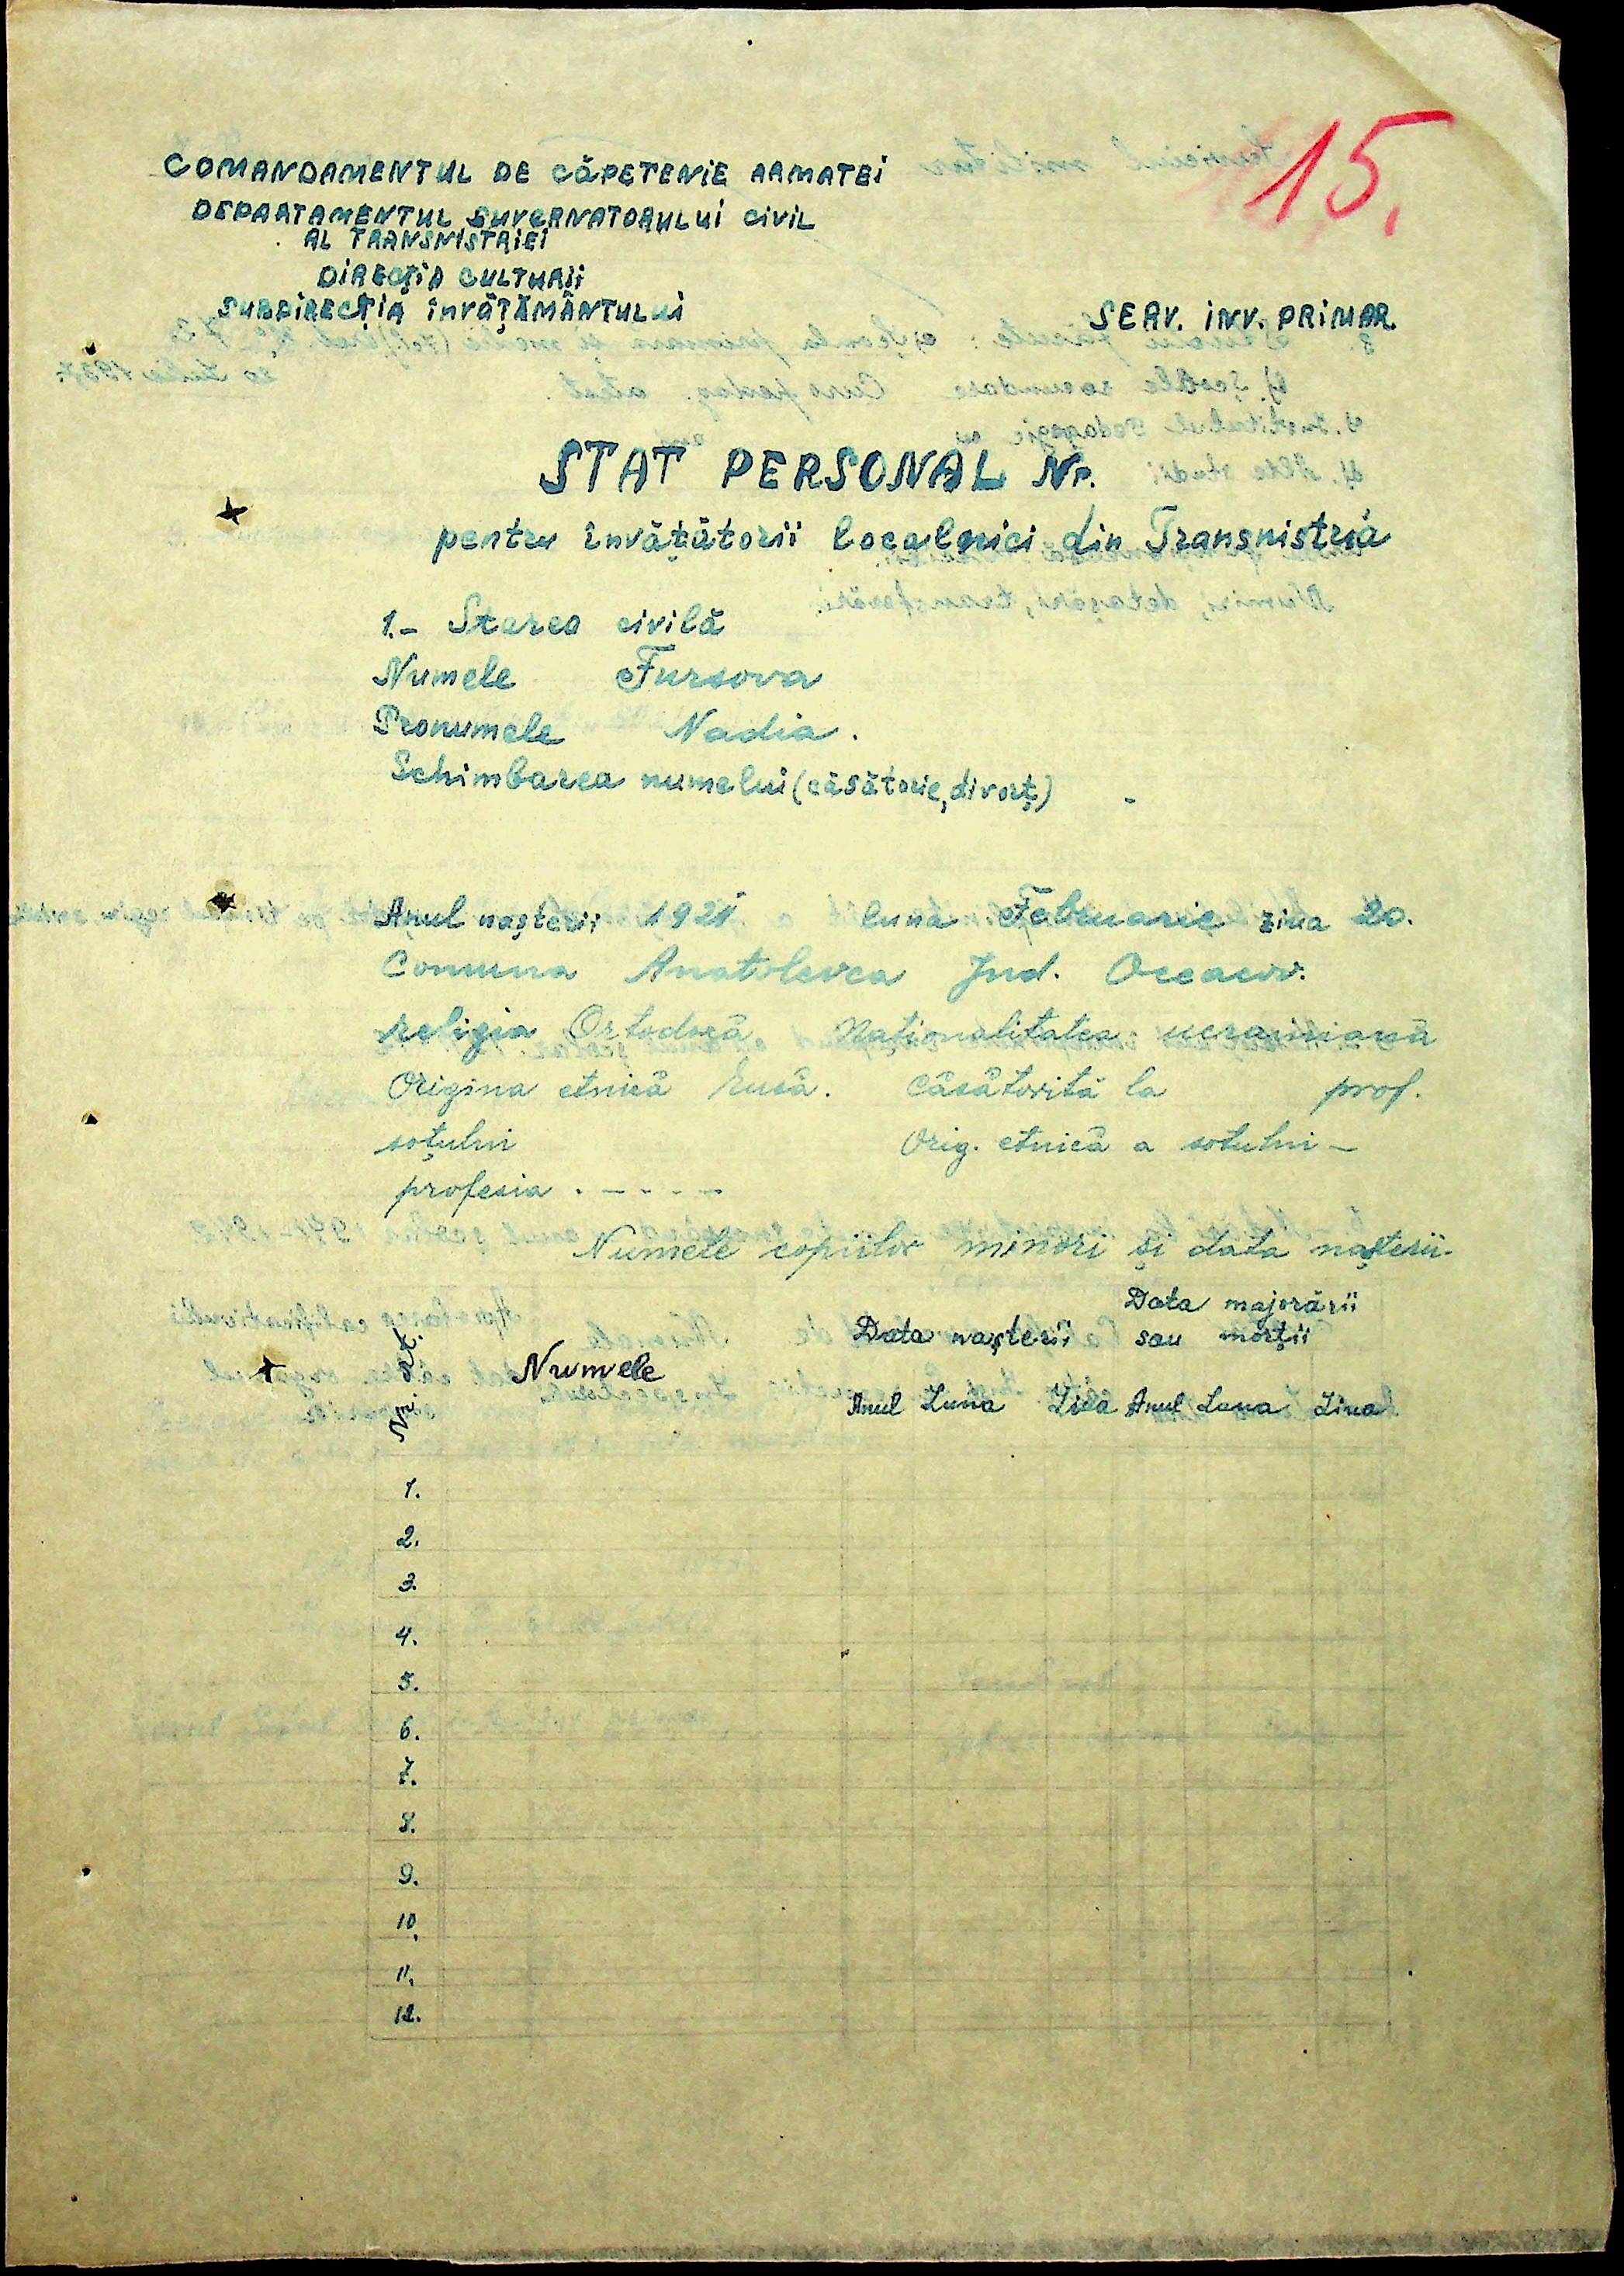 15.
COMANDAMENTUL DE CĂPETENIE ARMATEI
DEPARTAMENTUL GUVERNATORULUI CIVIL
AL TRANSNISTRIEI
DIRECȚIA CULTURII
SUBDIRECȚIA ÎNVĂȚĂMÂNTULUI
SERV. INV. PRIMAR.
STAT PERSONAL Nr.
pentru învățătorii localnici din Transnistria
1.- Starea civilă
Numele Fursova
Pronumele Nadia.
Schimbarea numelui (căsătorie, divorț) -
Anul nașterii 1921 luna Februarie ziua 20.
Comuna Anatolevca Jud. Oceacov.
religia Ortodoxă Naționalitatea ucrainiană
Origina etnică rusă. Căsătorită la prof.
soțului Orig. etnică a sotului -
profesia . - - - -
Numele copiilor minori și data nașterii.
Nr. crt. Numele Data nașterii Data majorării
sau morții
Anul Luna Ziua Anul Luna Ziua
1.
2.
3.
4.
5.
6.
7.
8.
9.
10.
11.
12.